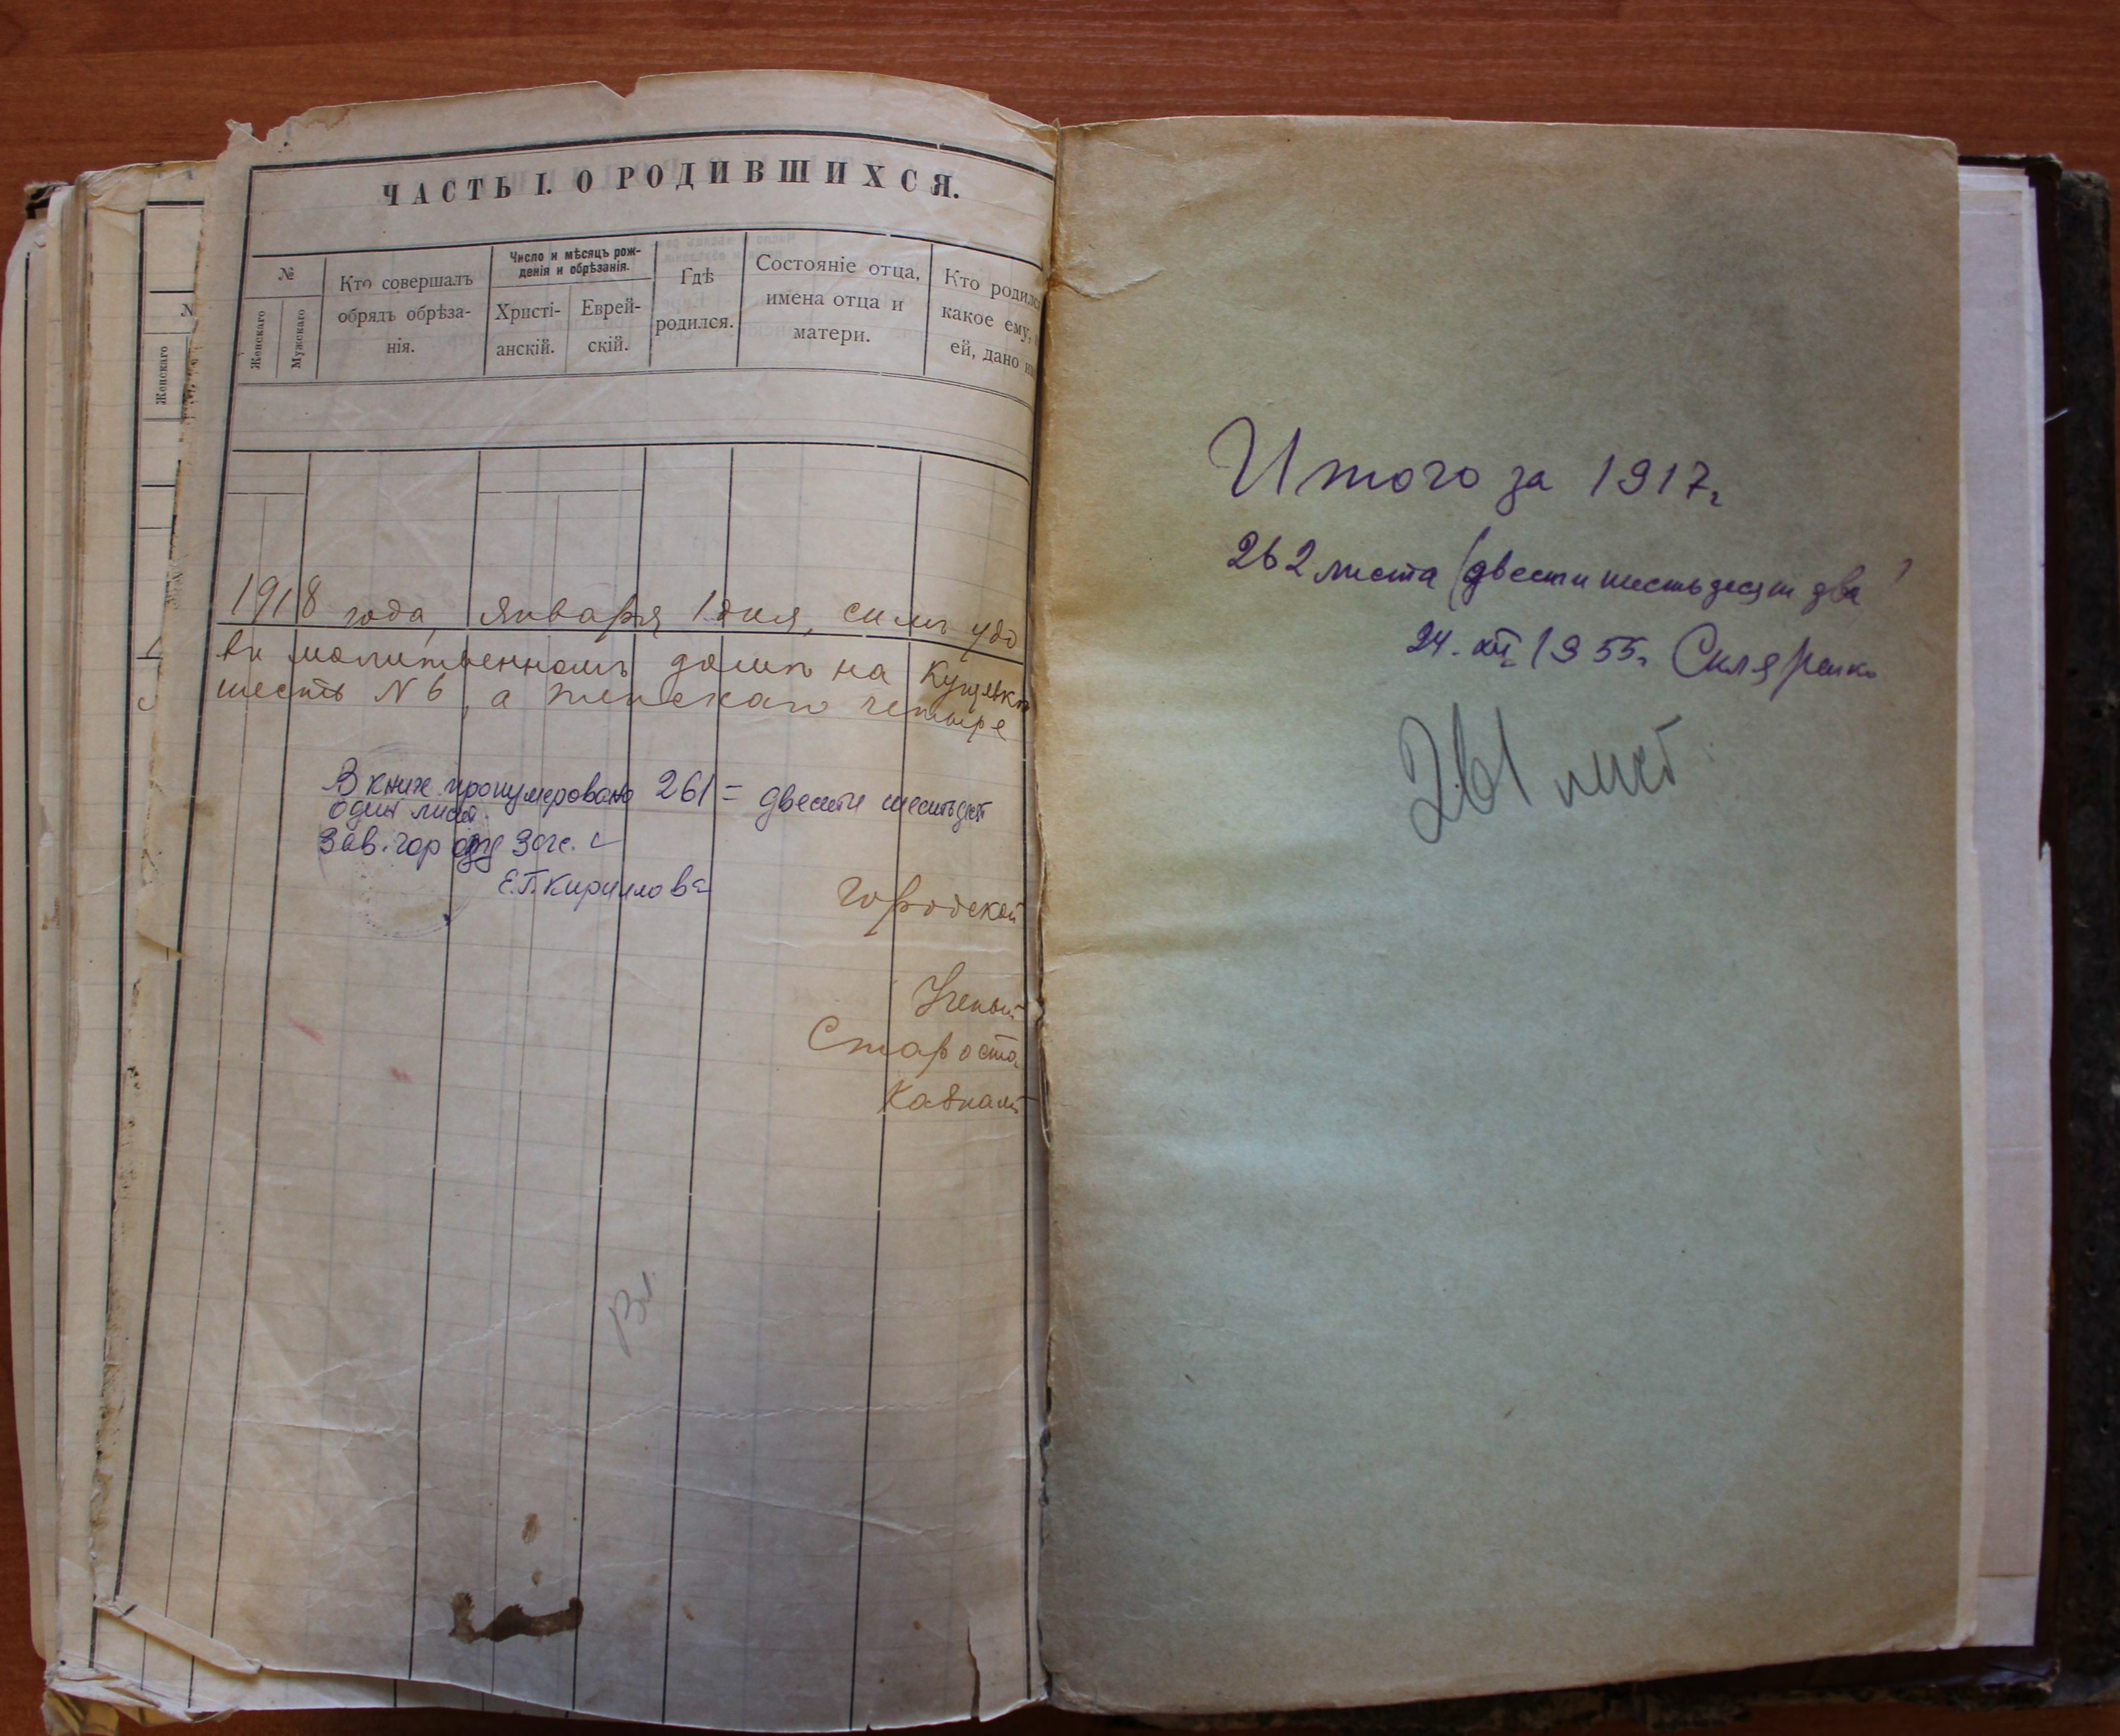 ЧАСТЬ I. О РОДИВШИХСЯ.
№
Женскаго
Мужескаго
Кто совершалъ
обрядъ обрѣза-
нія.
Число и мѣсяцъ рож-
денія и обрѣзанія.
Христі-
анскій.
Еврей-
скій.
Гдѣ
родился.
Состояніе отца,
имена отца и
матери.
Кто родился
какое ему,
ей, дано
Женскаго
1918 года, января 1 дня, симъ удо
въ молитвенномъ домѣ на
шесть N 6, а женскаго четыре
В книге пронумеровано 261 = двести шестьдесят
один лист.
Зав. гор загс.
Е.П. Кириллова
Городской
Ученый
Староста
Казнач
Итого за 1917 г
262 листа (двести шестьдесят два)
24. XII 1955 г. Скляренко
261 лист